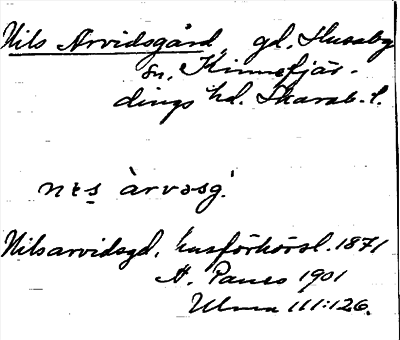 Nils Arvidsgård, gd, Husaby
sn, Kinnefjär-
dings hd. Skarab. l.
nɩs àrvəsg.
Nilsarvidsgd, husförhörsl. 1871
A. Panes 1901
Ulma 111:126.